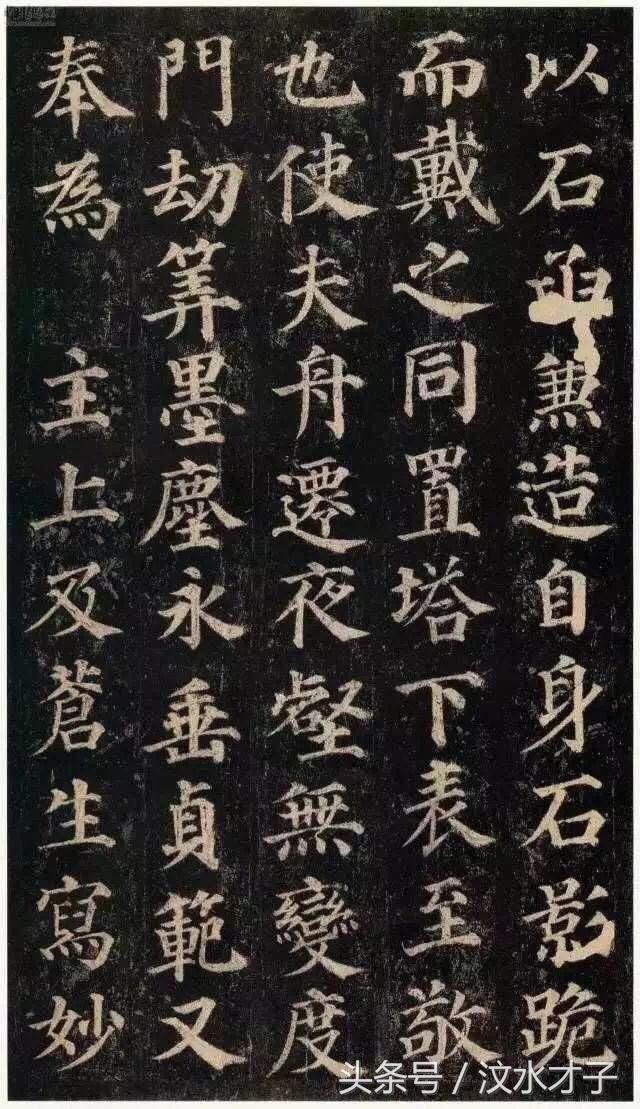 以石函兼造自身石影跪
而戴之同置塔下表至敬
也使夫舟遷夜壑無變度
門劫筭墨塵永垂貞範又
奉為 主上及蒼生寫妙
头条号 / 汶水才子